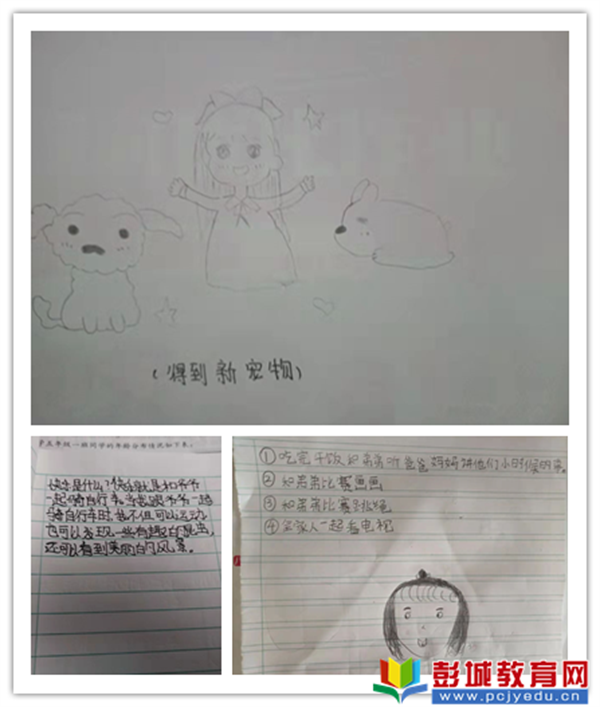 (得到新宠物)
五年级一班同学的年龄分布情况如下表。
快乐是什么？快乐就是和爷爷
一起骑自行车。当我跟爷爷一起
骑自行车时，我不但可以运动，
也可以发现一些有趣的昆虫，
还可以看到美丽的风景。
①吃完午饭和弟弟听爸爸妈妈讲他们小时候的事。
②和弟弟比赛画画
③和弟弟比赛跳绳
④全家人一起看电视
彭城教育网
www.pcjyedu.cn